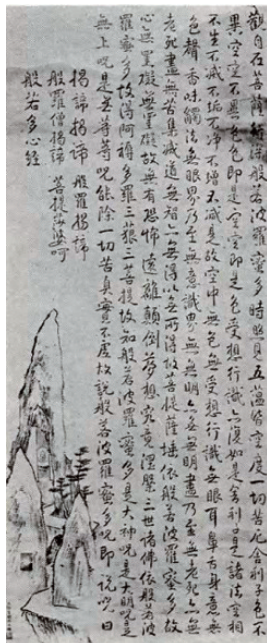 觀自在菩薩行深般若波羅蜜多時照見五蘊皆空度一切苦厄舍利子色不
異空空不異色色即是空空即是色受想行識亦復如是舍利子是諸法空相
不生不滅不垢不淨不增不減是故空中無色無受想行識無眼耳鼻舌身意無
色聲香味觸法無眼界乃至無意識界無無明亦無無明盡乃至無老死亦無
老死盡無苦集滅道無智亦無得以無所得故菩提薩埵依般若波羅蜜多故
心無罣礙無罣礙故無有恐怖遠離顛倒夢想究竟涅槃三世諸佛依般若波
羅蜜多故得阿耨多羅三藐三菩提故知般若波羅蜜多是大神呪是大明呪是
無上呪是無等等呪能除一切苦真實不虛故說般若波羅蜜多呪即說呪曰
揭諦揭諦 般羅揭諦
般羅僧揭諦 菩提莎婆呵
般若多心經